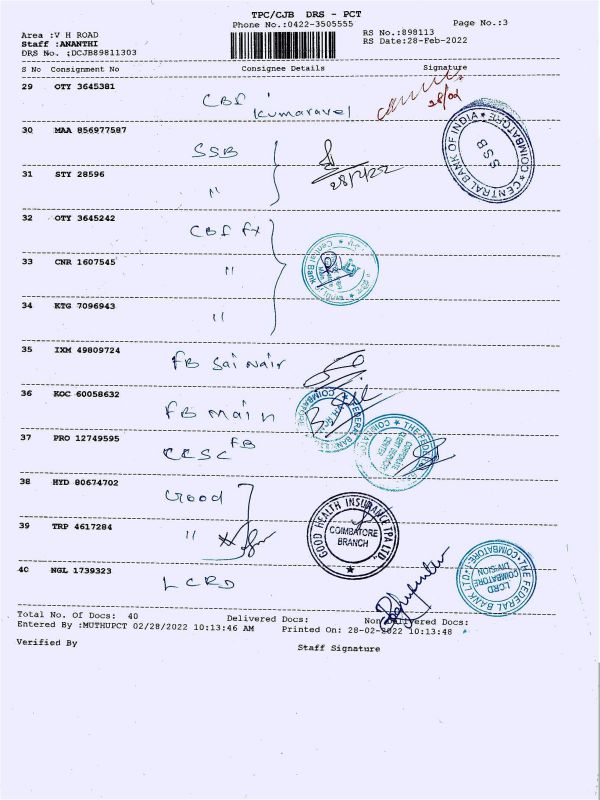 TPC/CJB DRS - PCT
Phone No.:0422-3505555
Page No.:3
Area :V H ROAD
RS No.:898113
Staff :ANANTHI
RS Date:28-Feb-2022
DRS No. :DCJB89811303
S No Consignment No Consignee Details Signature
29 OTY 3645381
CBI
Kumaravel
28/02
30 MAA 856977587
SSB
CENTRAL BANK OF INDIA
COIMBATORE
SSB
28/2/22
31 STY 28596
"
32 OTY 3645242
CBI fx
33 CNR 1607545
"
Central Bank
34 KTG 7096943
"
35 IXM 49809724
FB Sai Nair
36 KOC 60058632
FB Main
COIMBATORE
FEDERAL BANK
37 PRO 12749595
FB
CCSC
THE FEDERAL
COIMBATORE
CORPORATE
CLIENT SERVICE
CENTER
38 HYD 80674702
Good
39 TRP 4617284
"
GOOD HEALTH INSURANCE TPA LTD.
COIMBATORE
BRANCH
40 NGL 1739323
LCRD
THE FEDERAL BANK LTD
COIMBATORE
LCRD
COIMBATORE
DIVISION
Total No. Of Docs: 40 Delivered Docs: Non Delivered Docs:
Entered By :MUTHUPCT 02/28/2022 10:13:46 AM Printed On: 28-02-2022 10:13:48
Verified By
Staff Signature